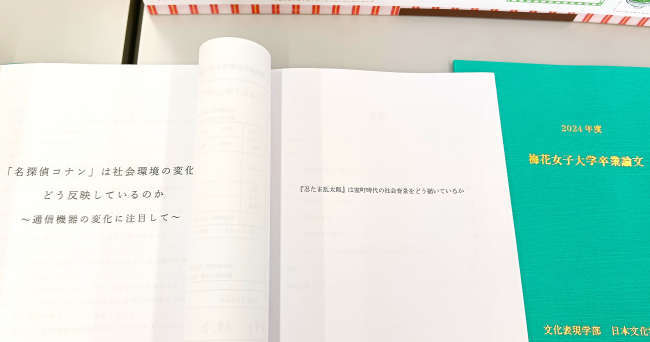 「名探偵コナン」は社会環境の変化
どう反映しているのか
～通信機器の変化に注目して～
『忍たま乱太郎』は室町時代の社会背景をどう描いているか
2024年度
梅花女子大学卒業論文
文化表現学部 日本文化